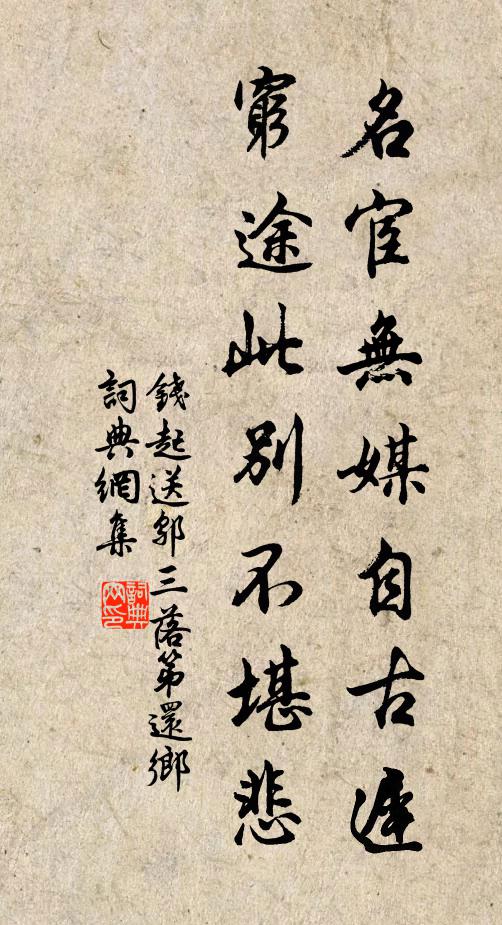 名宦無媒自古遲
窮途此別不堪悲
錢起送鄔三落第還鄉
詞典網集
詞典網印